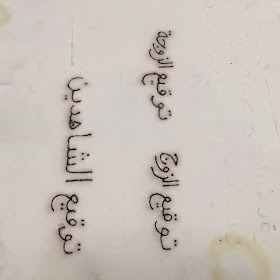 توقيع الزوجة
توقيع الزوج
توقيع الشاهدين